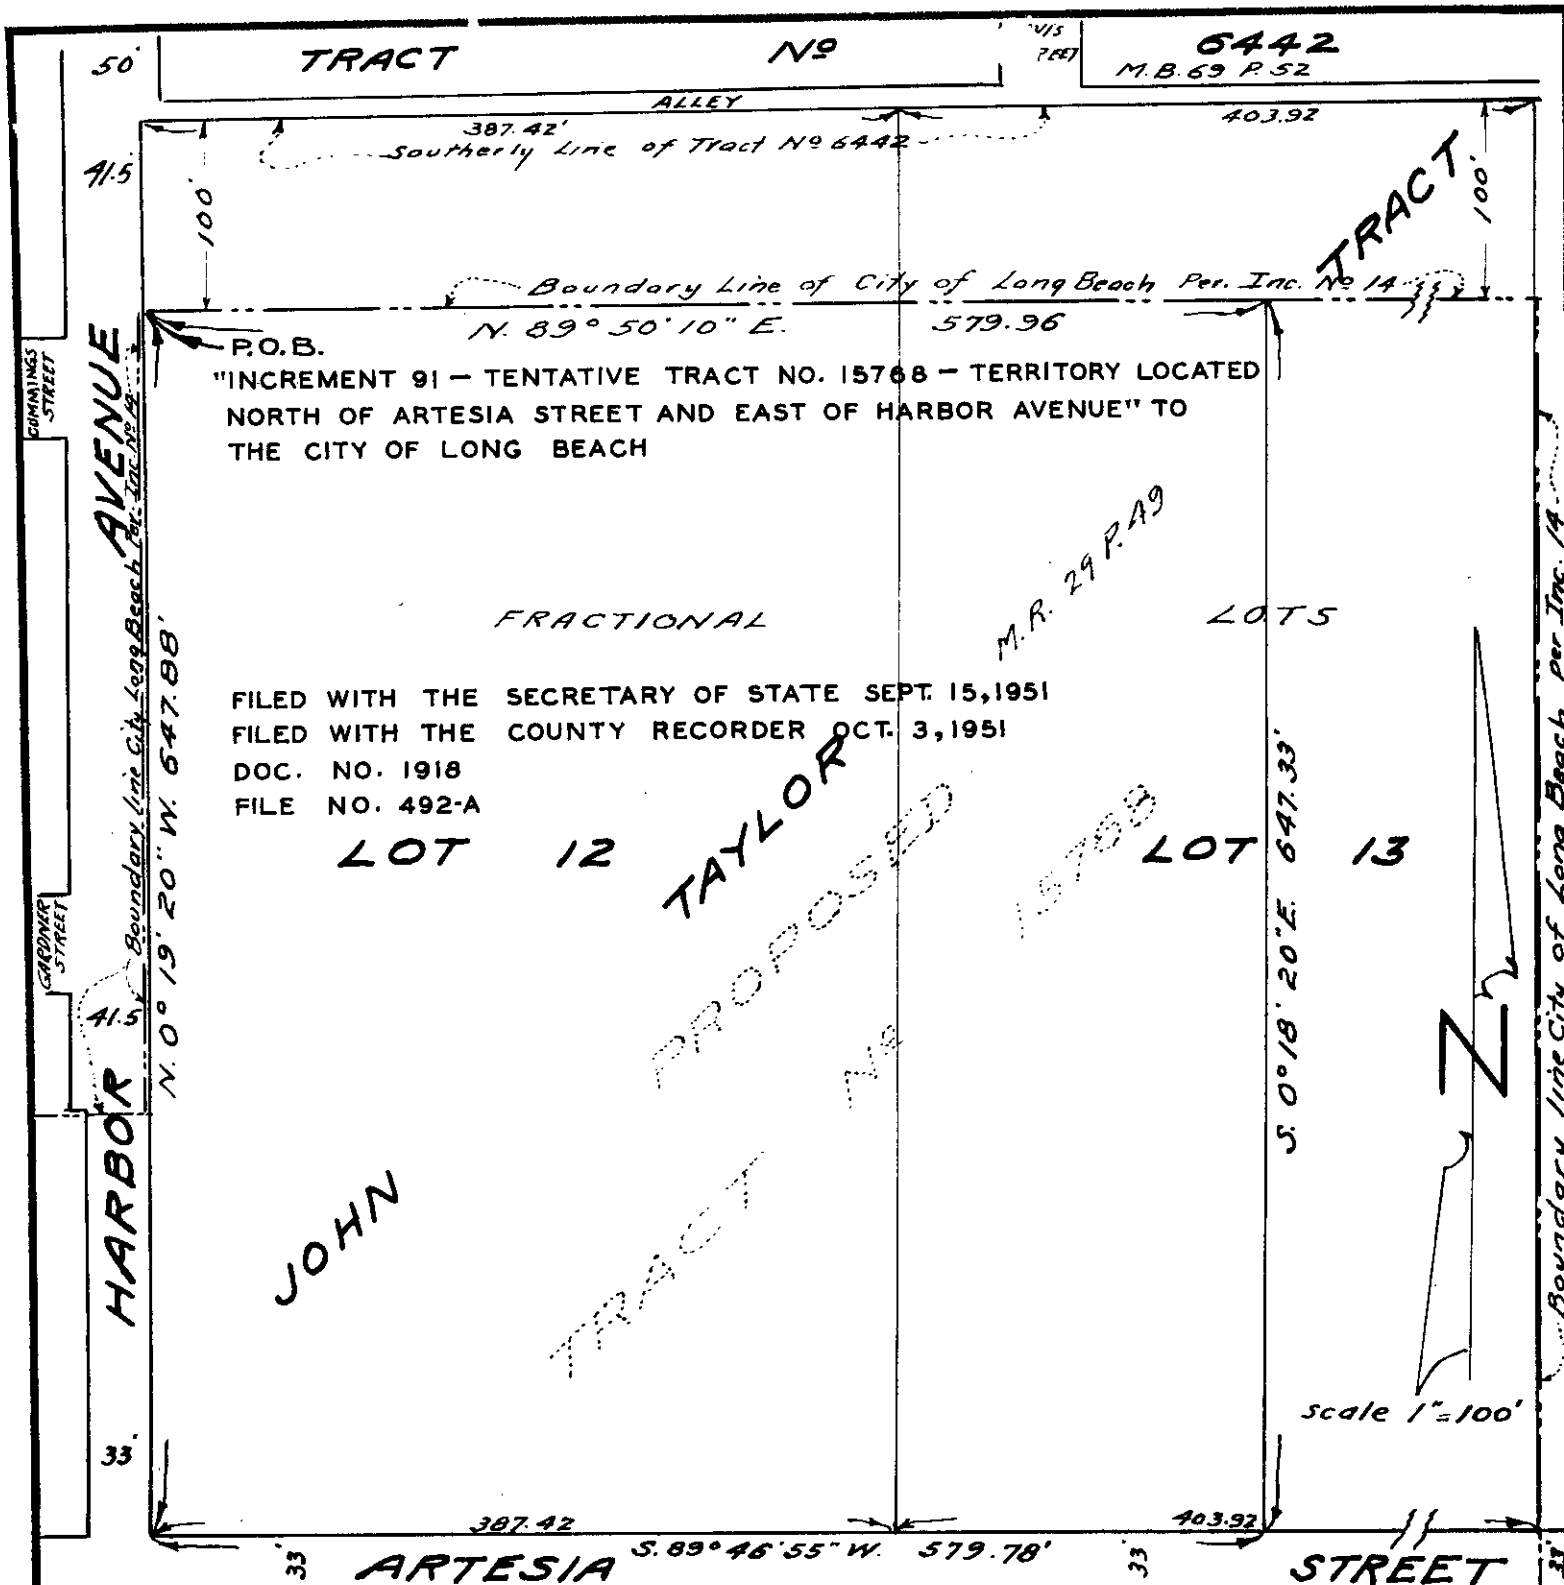 50'
TRACT Nº 6442
M.B. 69 P. 52
ALLEY
387.42'
403.92
Southerly Line of Tract Nº 6442
41.5
100'
100'
TRACT
Boundary Line of City of Long Beach Per. Inc. Nº 14
N. 89° 50' 10" E. 579.96
P.O.B.
"INCREMENT 91 — TENTATIVE TRACT NO. 15768 — TERRITORY LOCATED
NORTH OF ARTESIA STREET AND EAST OF HARBOR AVENUE" TO
THE CITY OF LONG BEACH
CUMMINGS
STREET
AVENUE
Boundary line City Long Beach Per. Inc. Nº 14
N. 0° 19' 20" W. 647.88'
M.R. 29 P. 49
FRACTIONAL LOTS
FILED WITH THE SECRETARY OF STATE SEPT. 15, 1951
FILED WITH THE COUNTY RECORDER OCT. 3, 1951
DOC. NO. 1918
FILE NO. 492-A
LOT 12
TAYLOR
LOT 13
PROPOSED
15768
Nº
TRACT
S. 0° 18' 20" E. 647.33'
GARDNER
STREET
41.5
HARBOR
JOHN
N
Boundary line City of Long Beach per Inc. 14
scale 1"=100'
33'
387.42
403.92
33'
ARTESIA
S. 89° 46' 55" W. 579.78'
33'
STREET
33'